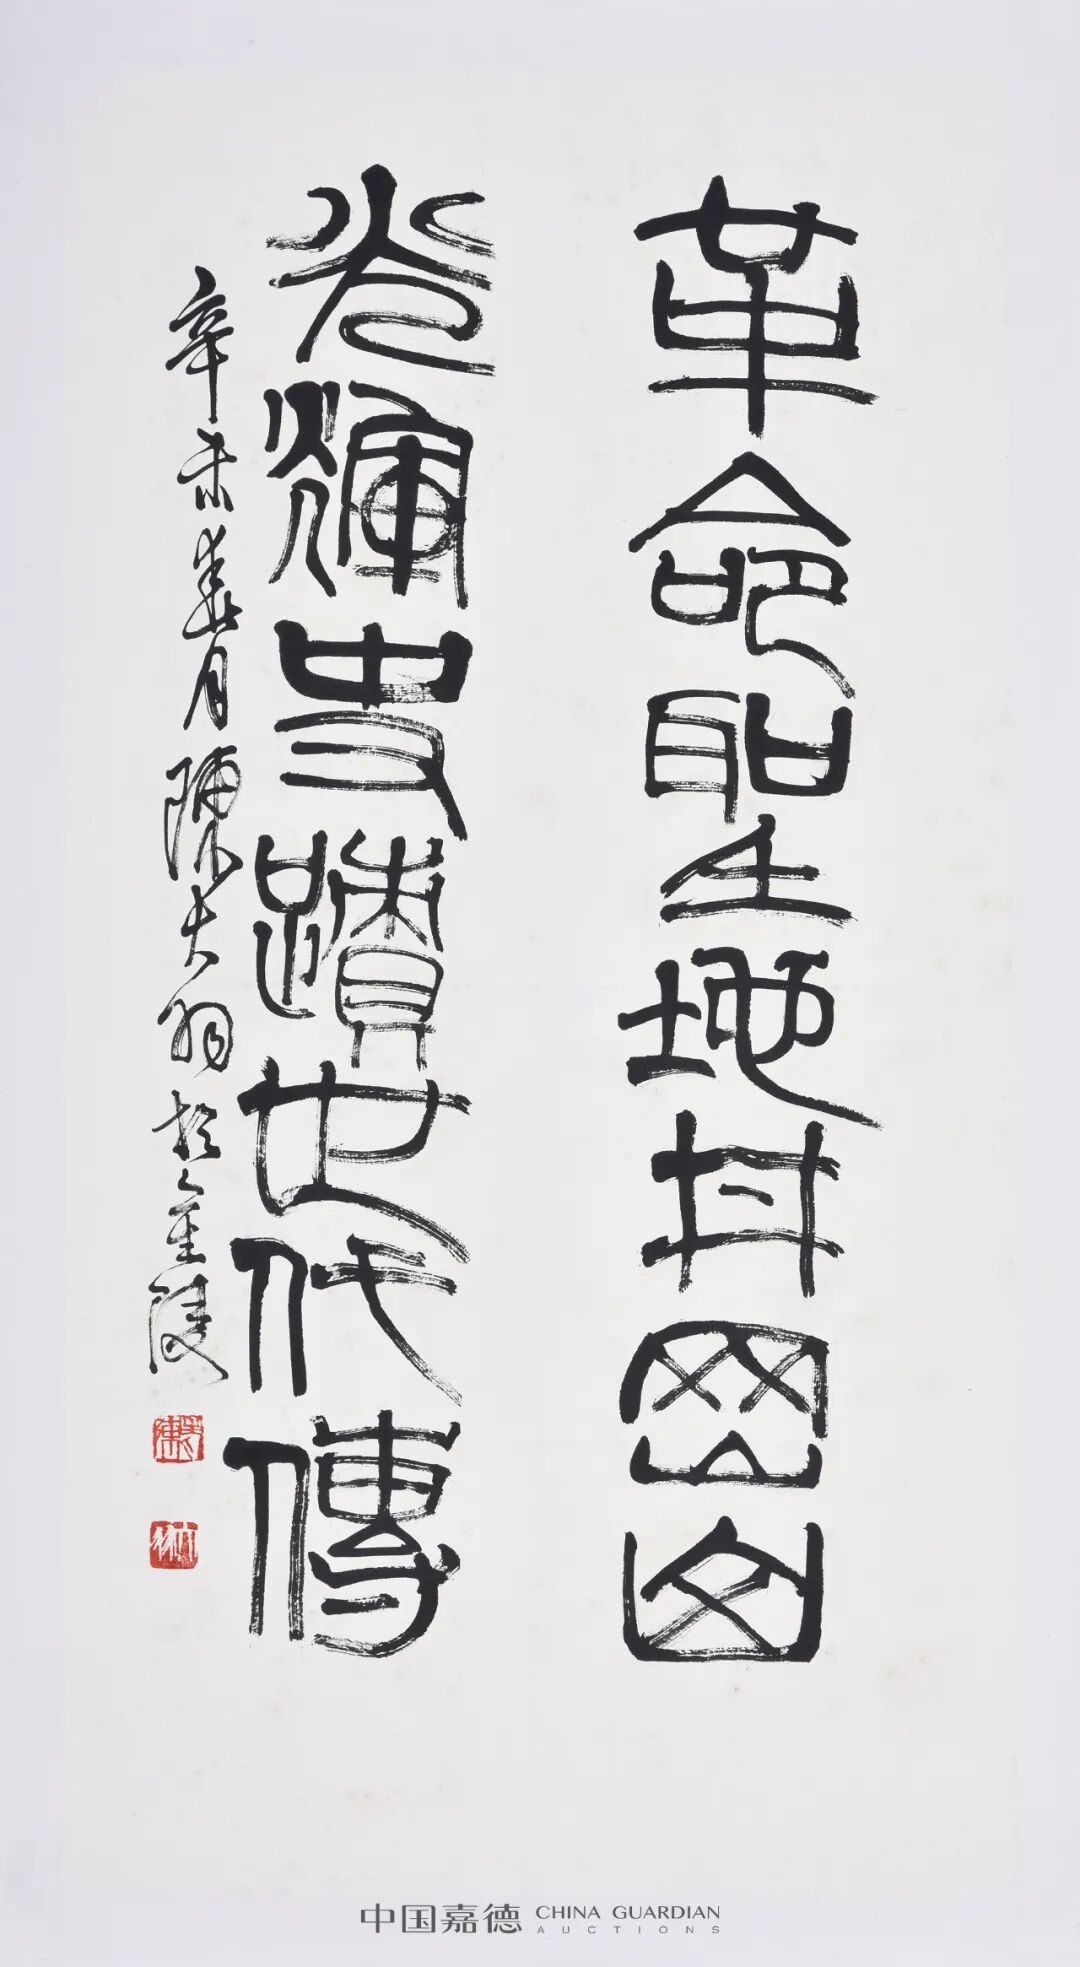 革命聖地井岡山
光輝史蹟世代傳
辛未春月陳大羽於金陵
大羽
中国嘉德 CHINA GUARDIAN
AUCTIONS